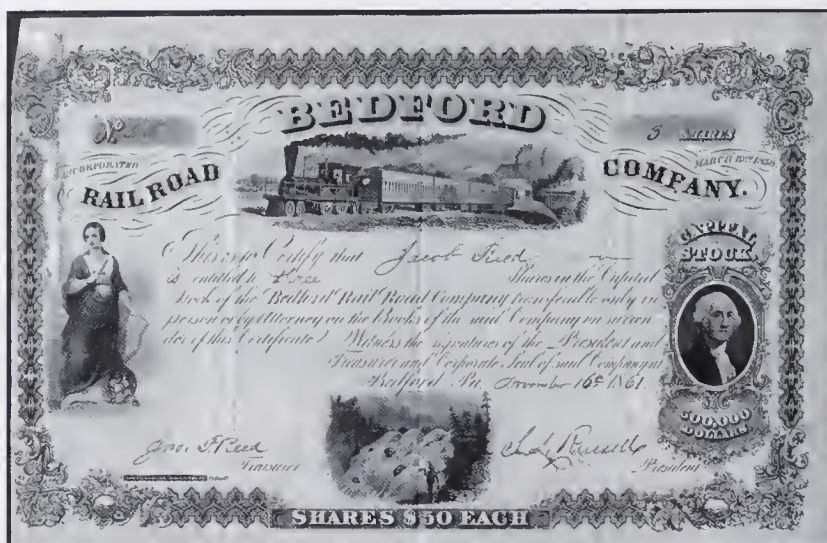 BEDFORD
No
3 SHARES
INCORPORATED
MARCH 19TH 1858
RAIL ROAD
COMPANY.
CAPITAL
STOCK
This is to Certify that Jacob
is entitled to Shares in the Capital
Stock of the Bedford Rail Road Company transferable only in
person or by Attorney on the Books of the said Company on surren
der of this Certificate Witness the signatures of the President and
Treasurer and Corporate Seal of said Company at
Bedford Pa. November 16 1861.
500,000
DOLLARS
Jno. Reed
Treasurer
Russell
President
SHARES $50 EACH